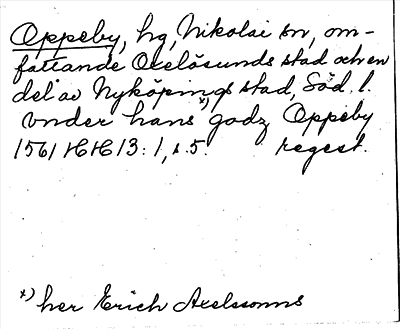 Oppeby, hg, Nikolai sn, om-
fattande Oxelösunds stad och en
del av Nyköpings stad, Söd. l.
Vnder hans x) godz Oppeby
1561 HH 13:1, s. 5. regest.
x) her Erich Axelssonns